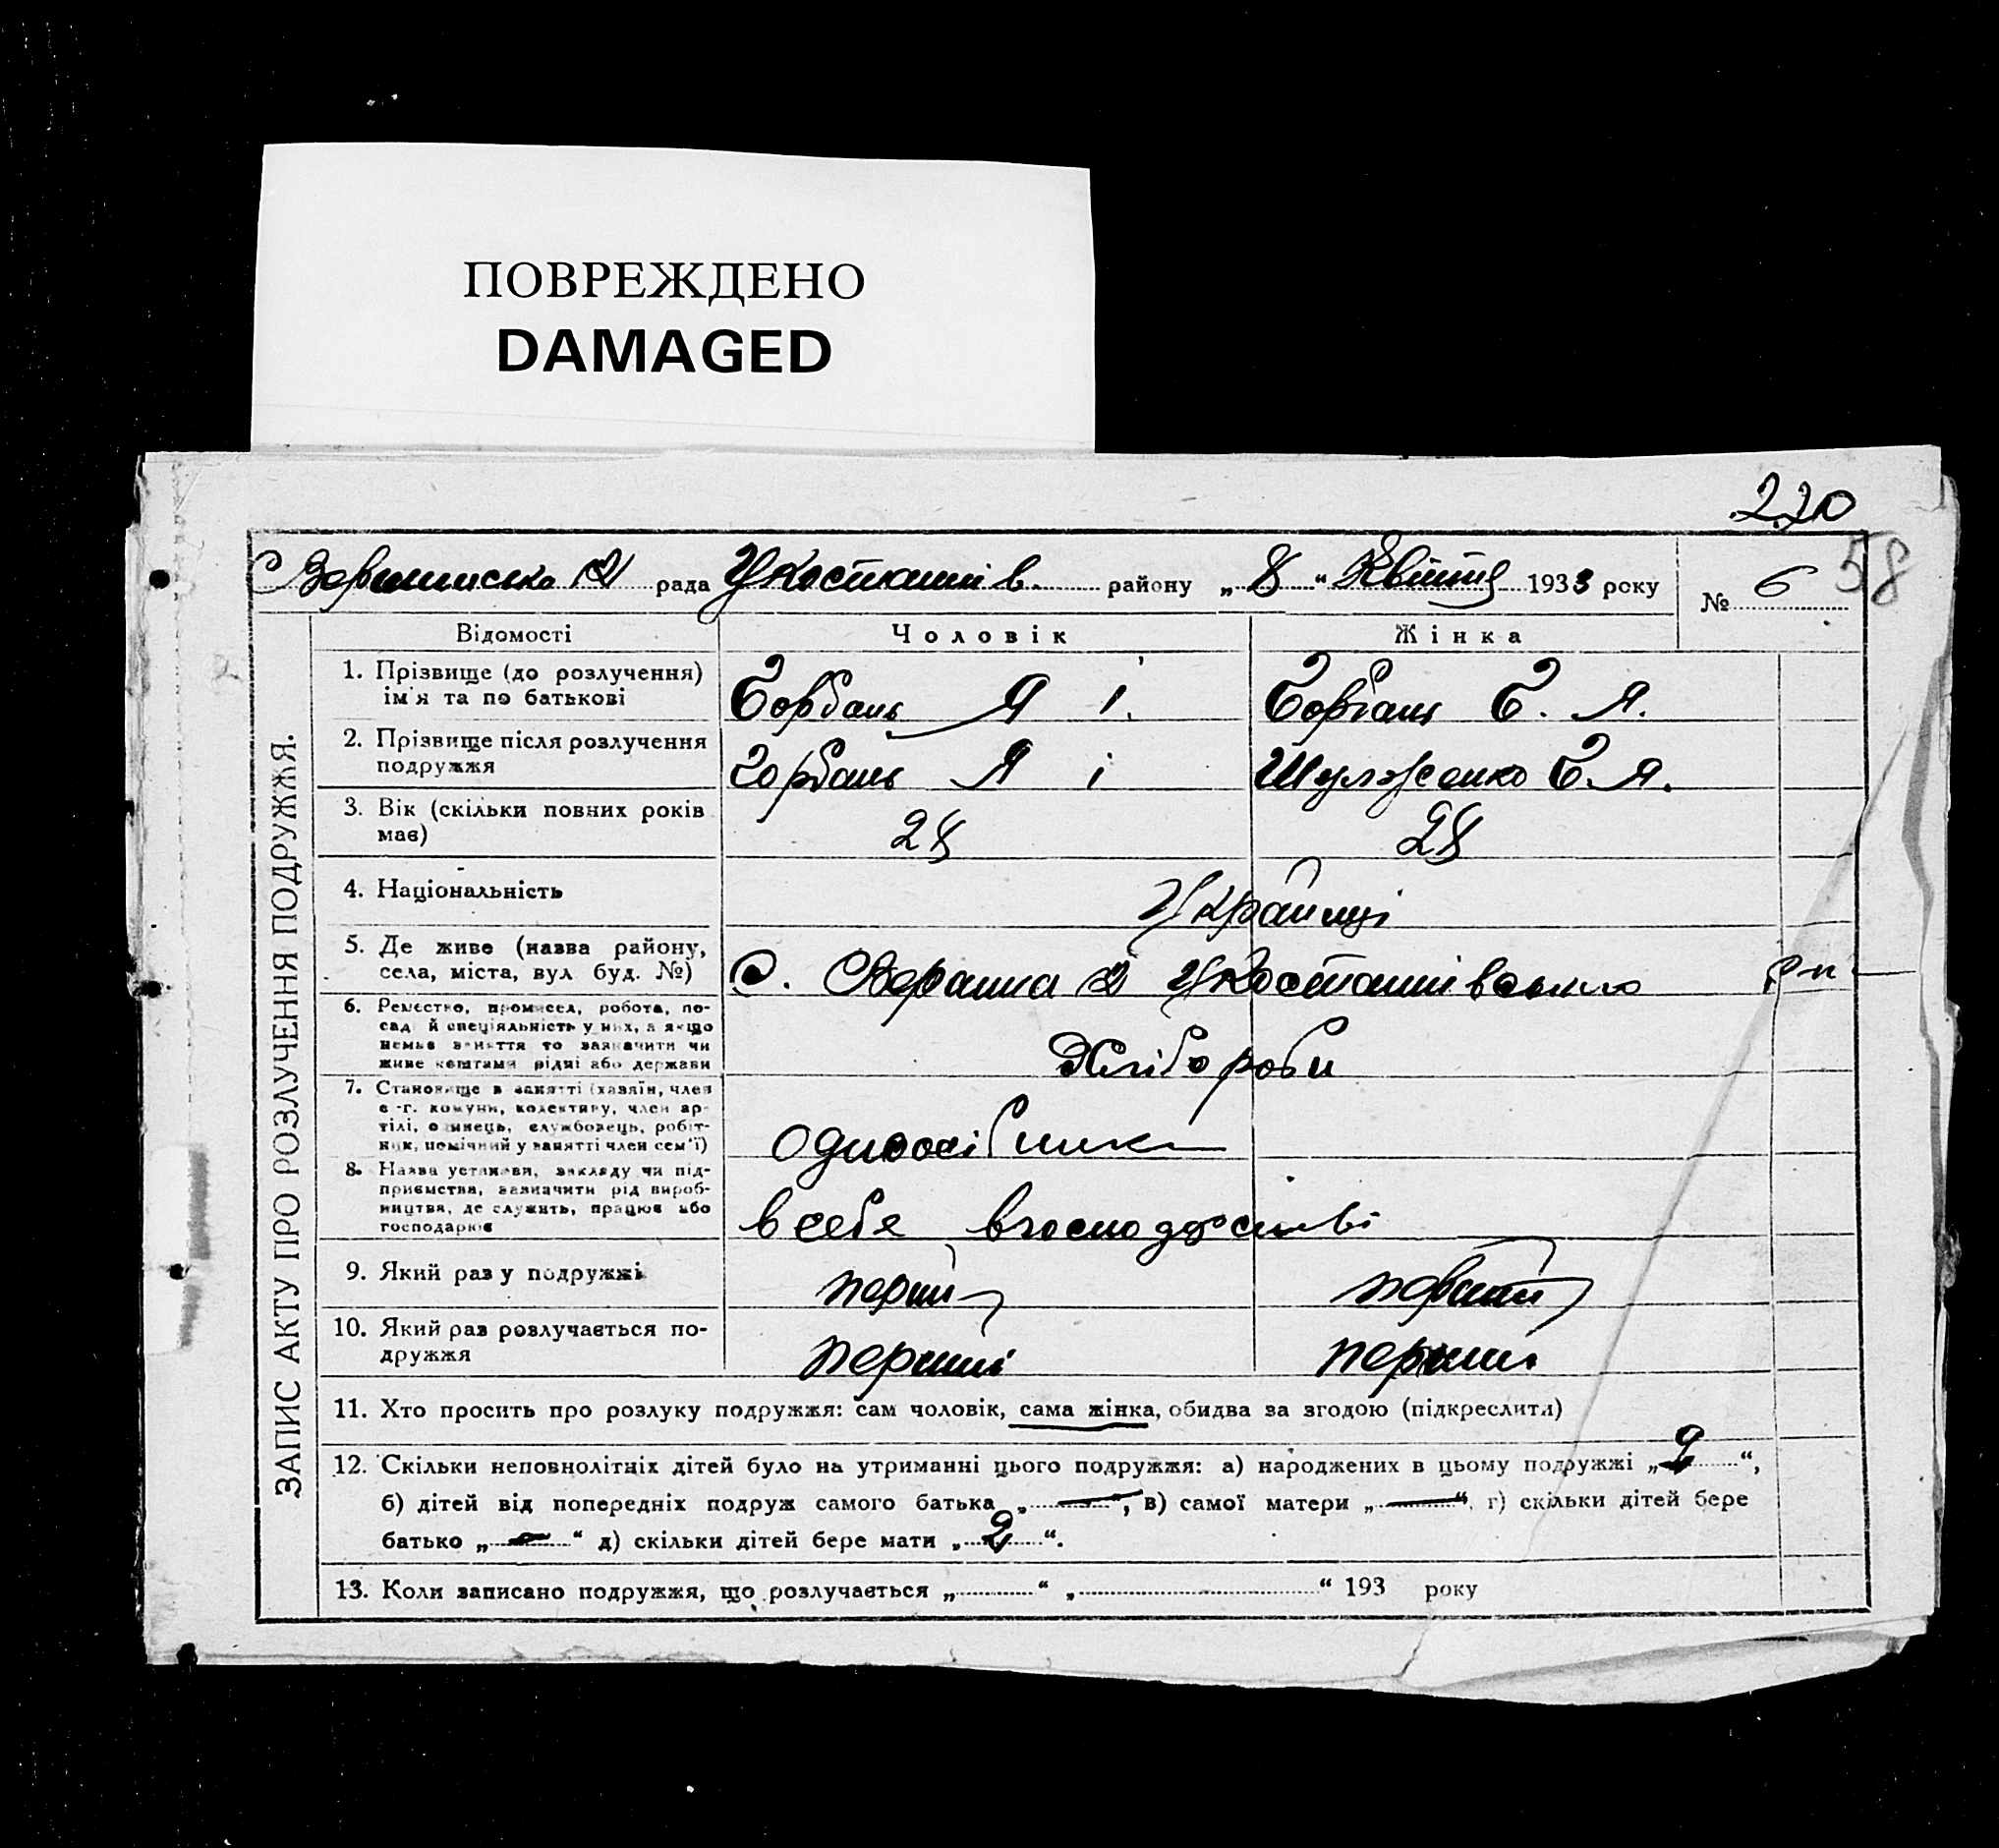 ПОВРЕЖДЕНО
DAMAGED
220
58
рада района „ 8 “ Квітня 1933 року № 6
ЗАПИС АКТУ ПРО РОЗЛУЧЕННЯ ПОДРУЖЖЯ.
Відомості Чоловік Жінка
1. Прізвище (до розлучення) ім'я та по батькові Горбань Я І. Горбань Є. Я.
2. Прізвище після розлучення подружжя Горбань Я і Шульженко Є. Я.
3. Вік (скільки повних років має) 28 28
4. Національність Українці
5. Де живе (назва району, села, міста, вул буд. №) С.
6. Ремество, промисел, робота, посад й спеціяльність у них, а якщо немає заняття то зазначити чи живе коштами рідні або держави Хлібороби
7. Становище в занятті (хазяїн, член с.-г. комуни, колективу, член артілі, одинець, службовець, робітник, помічний у занятті член сем'ї) одноосібники
8. Назва установи, закладу чи підприємства, зазначити рід виробництва, де служить, працює або господарює в себе в господарстві
9. Який раз у подружжі перший перший
10. Який раз розлучається подружжя перший перший
11. Хто просить про розлуку подружжя: сам чоловік, сама жінка, обидва за згодою (підкреслити)
12. Скільки неповнолітніх дітей було на утриманні цього подружжя: а) народжених в цьому подружжі „ 2 “,
б) дітей від попередніх подруж самого батька „ — “, в) самої матери „ — “, г) скільки дітей бере
батько „ — “ д) скільки дітей бере мати „ 2 “.
13. Коли записано подружжя, що розлучається „ “ „ “ 193 року